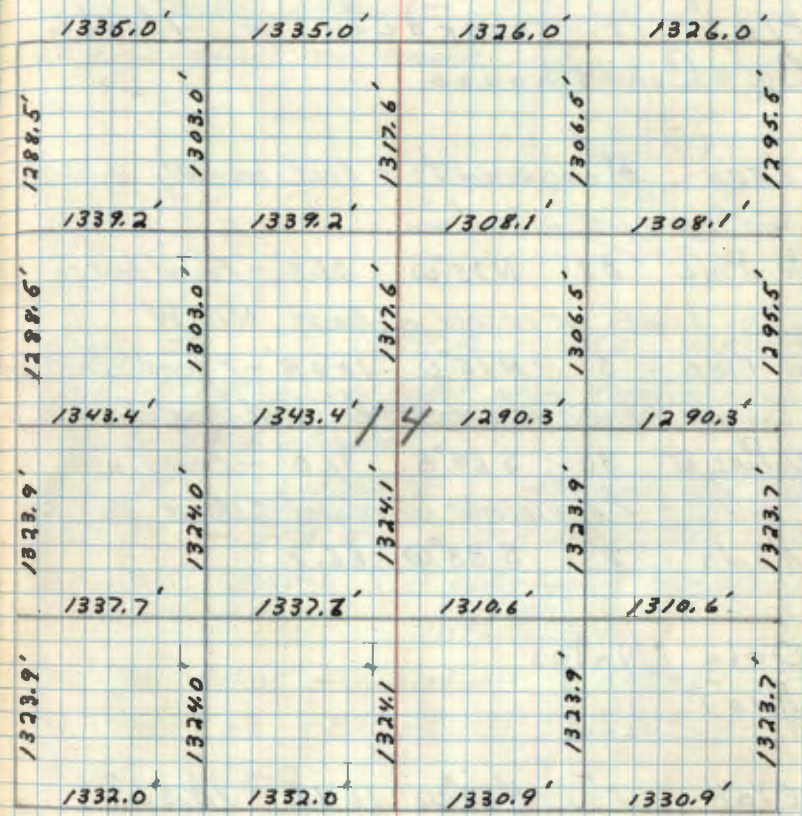 1335.0' 1335.0' 1326.0' 1326.0'
1288.5' 1303.0' 1317.6' 1306.5' 1295.5'
1339.2' 1339.2' 1308.1' 1308.1'
1288.5' 1303.0' 1317.6' 1306.5' 1295.5'
1343.4' 1343.4' 14 1290.3' 1290.3'
1323.9' 1324.0' 1324.1' 1323.9' 1323.7'
1337.7' 1337.7' 1310.6' 1310.6'
1323.9' 1324.0' 1324.1 1323.9' 1323.7'
1332.0' 1332.0' 1330.9' 1330.9'